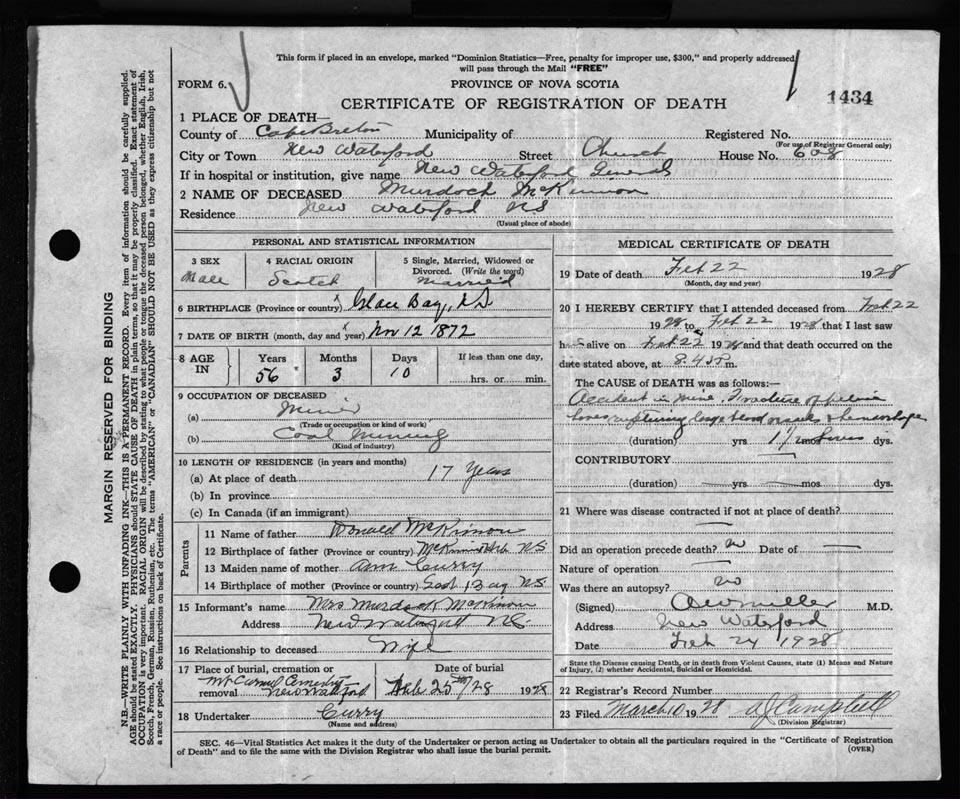 This form if placed in an envelope, marked "Dominion Statistics—Free, penalty for improper use, $300," and properly addressed
will pass through the Mail "FREE"
FORM 6.
PROVINCE OF NOVA SCOTIA
CERTIFICATE OF REGISTRATION OF DEATH
1434
1 PLACE OF DEATH—
County of Cape Breton Municipality of Registered No.
(For use of Registrar General only)
City or Town New Waterford Street Church House No. 608
If in hospital or institution, give name New Waterford General
2 NAME OF DECEASED Murdoch McKinnon
Residence New Waterford N.S
(Usual place of abode)
PERSONAL AND STATISTICAL INFORMATION
3 SEX 4 RACIAL ORIGIN 5 Single, Married, Widowed or
Divorced. (Write the word)
Male Scotch Married
6 BIRTHPLACE (Province or country) Glace Bay, N.S
7 DATE OF BIRTH (month, day and year) Nov 12 1872
8 AGE IN Years Months Days If less than one day,
56 3 10 hrs. or min.
9 OCCUPATION OF DECEASED
(a) Miner
(Trade or occupation or kind of work)
(b) Coal Mining
(Kind of industry)
10 LENGTH OF RESIDENCE (in years and months)
(a) At place of death 17 Years
(b) In province
(c) In Canada (if an immigrant)
Parents
11 Name of father Donald McKinnon
12 Birthplace of father (Province or country) N S
13 Maiden name of mother Ann Curry
14 Birthplace of mother (Province or country) East Bay N S
15 Informant's name Mrs Murdock McKinnon
Address New Waterford N.S.
16 Relationship to deceased Wife
17 Place of burial, cremation or
removal Mt Carmel Cemetery
New Waterford
Date of burial
Feb 25th/28 1928
18 Undertaker Curry
(Name and address)
MEDICAL CERTIFICATE OF DEATH
19 Date of death Feb 22 1928
(Month, day and year)
20 I HEREBY CERTIFY that I attended deceased from Feb 22
1928 to Feb 22 1928 that I last saw
him alive on Feb 22 1928 and that death occurred on
date stated above, at 8.45 P m.
The CAUSE OF DEATH was as follows:
Accident in mine. Fracture of pelvic
bones rupturing large blood vessels & hemorrhage
(duration) yrs 1 1/2 mos hours dys.
CONTRIBUTORY —
(duration) — yrs — mos — dys.
21 Where was disease contracted if not at place of death?
—
Did an operation precede death? no Date of —
Nature of operation —
Was there an autopsy? no
(Signed) Miller M.D.
Address New Waterford
Date Feb 24 1928
State the Disease causing Death, or in death from Violent Causes, state (1) Means and Nature
of Injury, (2) whether Accidental, Suicidal or Homicidal.
22 Registrar's Record Number
23 Filed March 10 1928 AJ Campbell
(Division Registrar)
SEC. 46—Vital Statistics Act makes it the duty of the Undertaker or person acting as Undertaker to obtain all the particulars required in the "Certificate of Registration
of Death" and to file the same with the Division Registrar who shall issue the burial permit.
(OVER)
MARGIN RESERVED FOR BINDING
N.B.—WRITE PLAINLY WITH UNFADING INK—THIS IS A PERMANENT RECORD. Every item of information should be carefully supplied.
AGE should be stated EXACTLY. PHYSICIANS should STATE CAUSE OF DEATH in plain terms, so that it may be properly classified. Exact statement of
OCCUPATION is very important. RACIAL ORIGIN will be described by stating to what people or tongue the deceased person belonged, whether English, Irish,
Scotch, French, German, Russian, Ruthenian, etc. The terms "AMERICAN" or "CANADIAN" SHOULD NOT BE USED as they express citizenship but not
a race or people. See instructions on back of Certificate.